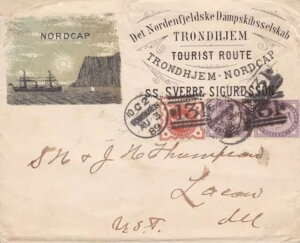 NORDCAP
Det Nordenfjeldske Dampskibsselskab
TRONDHJEM
TOURIST ROUTE
TRONDHJEM-NORDCAP
SS. SVERRE SIGURDSSØN
131
131
JU 3
89
S N & J H Thompson
Lacon
Ill
U.S.A.